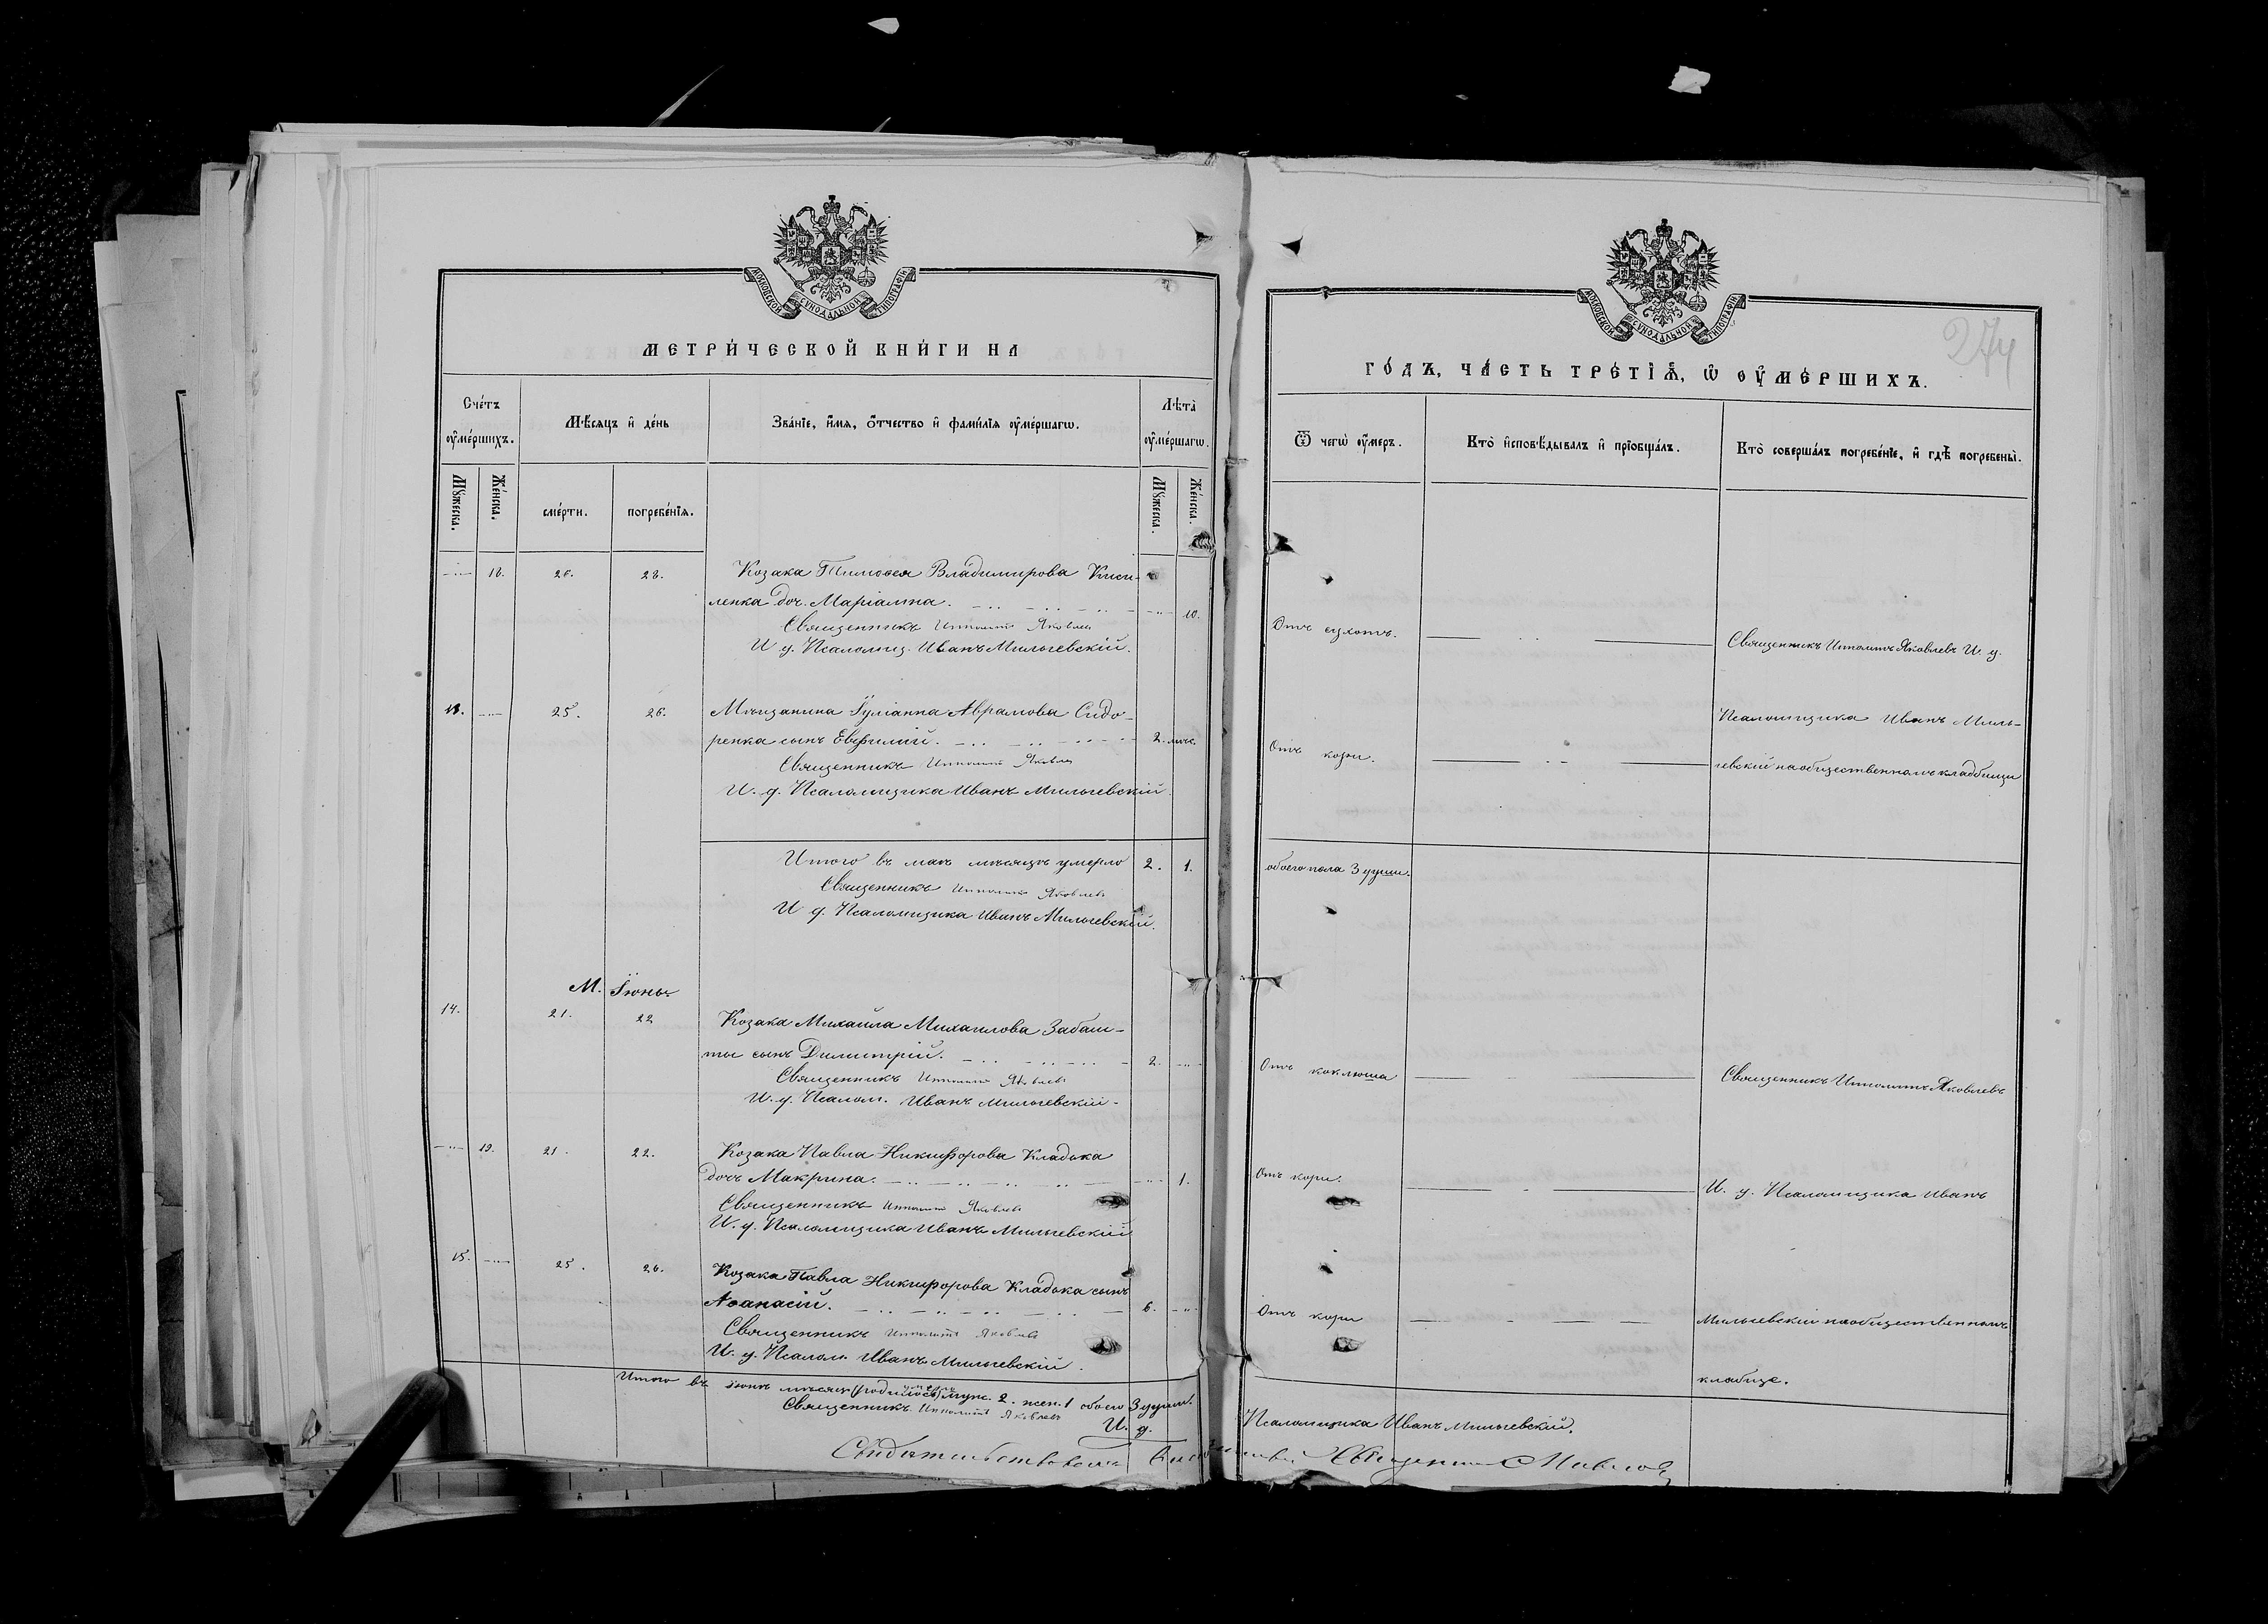 МОСКОВСКОЙ СѴНОДАЛЬНОЙ ТИПОГРАФІИ
МЕТРИ́ЧЕСКОЙ КНИ́ГИ НА
Сче́тъ ᲂу҆ме́ршихъ.
Мѣ́сяцъ и҆ де́нь
Зва́нїе, и҆́мя, ѻ҆́тчество и҆ фамі́лїя ᲂу҆ме́ршагѡ.
Лѣта̀ ᲂу҆ме́ршагѡ.
Мꙋ́жеска.
Же́нска.
сме́рти.
погребе́нїя.
Мꙋ́жеска.
Же́нска.
18. 26. 28. Козака Тимоѳея Владимірова Киси-
ленка доч. Маріамна. 10.
Священникъ Ипполитъ Яковлевъ
И д. Псаломщ. Иванъ Мильчевскій.
13. 25. 26. Мѣщанина Іуліанна Аврамова Сидо-
ренка сынъ Евфимій. 2. мѣс.
Священникъ Ипполитъ Яковлевъ
И. д. Псаломщика Иванъ Мильчевскій
Итого въ маѣ мѣсяцѣ умерло 2. 1.
Священникъ Ипполитъ Яковлевъ
И д. Псаломщика Иванъ Мильчевскій.
М. Іюнь
14. 21. 22 Козака Михаила Михаилова Забаш-
ты сынъ Димитрій. 2.
Священникъ Ипполитъ Яковлевъ
И. д. Псалом. Иванъ Мильчевскій
19. 21. 22. Козака Павла Никифорова Кладька
дочь Макрина. 1.
Священникъ Ипполитъ Яковлевъ
И. д. Псаломщика Иванъ Мильчевскій
15. 25. 26. Козака Павла Никифорова Кладька сынъ
Аѳанасій. 6.
Священникъ Ипполитъ Яковлевъ
И. д. Псалом. Иванъ Мильчевскій.
Итого въ іюнѣ мѣсяцѣ (родилось) умерло муж. 2. жен. 1 обоего 3 души.
Священникъ Ипполитъ Яковлевъ
И. д.
Свидѣтельствовалъ
274
МОСКОВСКОЙ СѴНОДАЛЬНОЙ ТИПОГРАФІИ
ГО́ДЪ, ЧА́СТЬ ТРЕ́ТЇѦ, Ѡ҆ ᲂУ҆МЕ́РШИХЪ.
Ѿ чегѡ̀ ᲂу҆́меръ.
Кто̀ и҆сповѣ́дывалъ и҆ прїобща́лъ.
Кто̀ соверша́лъ погребе́нїе, и҆ гдѣ̀ погребены̀.
Отъ сухотъ.
Священникъ Ипполитъ Яковлевъ И. д.
Псаломщика Иванъ Миль-
Отъ кори.
чевскій на общественномъ кладбищи
обоего пола 3 души.
Отъ коклюша
Священникъ Ипполитъ Яковлевъ
Отъ кори.
И. д. Псаломщика Иванъ
Отъ кори
Мильчевскій на общественномъ
кладбище.
Псаломщика Иванъ Мильчевскій.
Священникъ